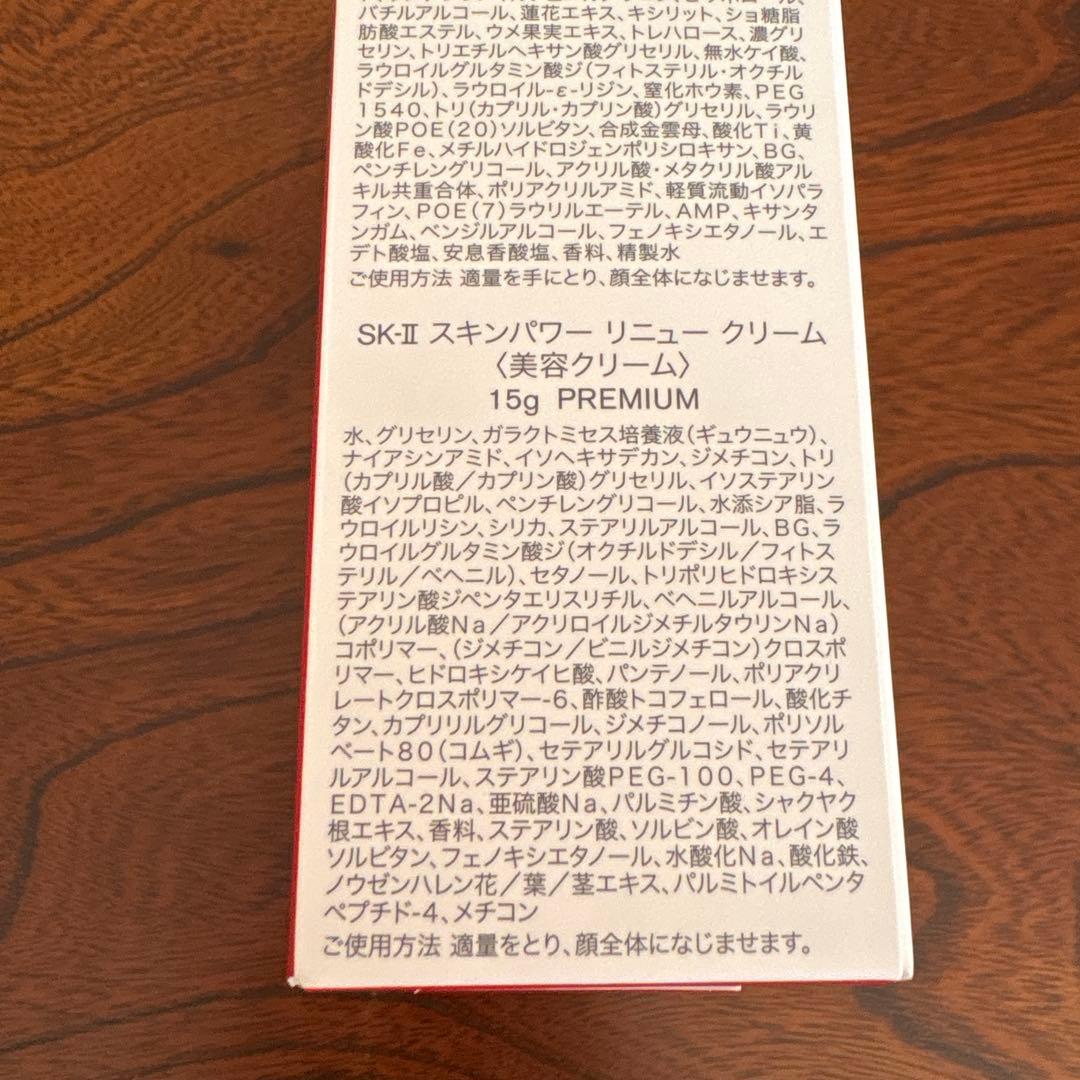 パチルアルコール、蓮花エキス、キシリット、ショ糖脂
肪酸エステル、ウメ果実エキス、トレハロース、濃グリ
セリン、トリエチルヘキサン酸グリセリル、無水ケイ酸、
ラウロイルグルタミン酸ジ(フィトステリル・オクチル
ドデシル)、ラウロイル-ε-リジン、窒化ホウ素、PEG
1540、トリ(カプリル・カプリン酸)グリセリル、ラウリ
ン酸POE(20)ソルビタン、合成金雲母、酸化Ti、黄
酸化Fe、メチルハイドロジェンポリシロキサン、BG、
ペンチレングリコール、アクリル酸・メタクリル酸アル
キル共重合体、ポリアクリルアミド、軽質流動イソパラ
フィン、POE(7)ラウリルエーテル、AMP、キサンタ
ンガム、ベンジルアルコール、フェノキシエタノール、エ
デト酸塩、安息香酸塩、香料、精製水
ご使用方法 適量を手にとり、顔全体になじませます。
SK-II スキンパワー リニュー クリーム
〈美容クリーム〉
15g PREMIUM
水、グリセリン、ガラクトミセス培養液(ギュウニュウ)、
ナイアシンアミド、イソヘキサデカン、ジメチコン、トリ
(カプリル酸/カプリン酸)グリセリル、イソステアリン
酸イソプロピル、ペンチレングリコール、水添シア脂、ラ
ウロイルリシン、シリカ、ステアリルアルコール、BG、ラ
ウロイルグルタミン酸ジ(オクチルドデシル/フィトス
テリル/ベヘニル)、セタノール、トリポリヒドロキシス
テアリン酸ジペンタエリスリチル、ベヘニルアルコール、
(アクリル酸Na/アクリロイルジメチルタウリンNa)
コポリマー、(ジメチコン/ビニルジメチコン)クロスポ
リマー、ヒドロキシケイヒ酸、パンテノール、ポリアクリ
レートクロスポリマー-6、酢酸トコフェロール、酸化チ
タン、カプリリルグリコール、ジメチコノール、ポリソル
ベート80(コムギ)、セテアリルグルコシド、セテアリ
ルアルコール、ステアリン酸PEG-100、PEG-4、
EDTA-2Na、亜硫酸Na、パルミチン酸、シャクヤク
根エキス、香料、ステアリン酸、ソルビン酸、オレイン酸
ソルビタン、フェノキシエタノール、水酸化Na、酸化鉄、
ノウゼンハレン花/葉/茎エキス、パルミトイルペンタ
ペプチド-4、メチコン
ご使用方法 適量をとり、顔全体になじませます。